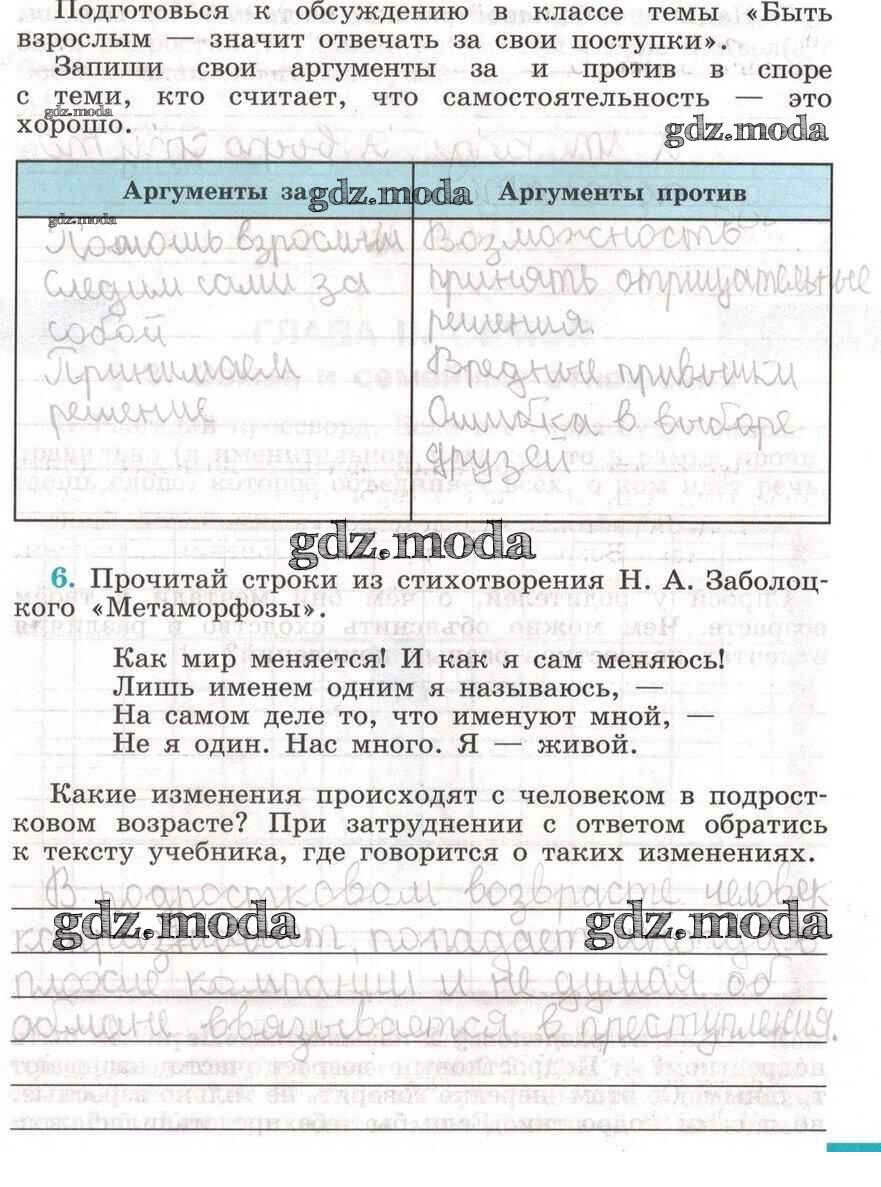 Подготовься к обсуждению в классе темы «Быть
взрослым — значит отвечать за свои поступки».
Запиши свои аргументы за и против в споре
с теми, кто считает, что самостоятельность — это
gdz.moda
хорошо.
gdz.moda
Аргументы за
gdz.moda
Аргументы против
gdz.moda
Помошь взрослым
Следим сами за
собой
Принимаем
решение
Возможность
принять отрицательные
решения.
Вредные привычки
Ошибка в выборе
друзей
gdz.moda
6. Прочитай строки из стихотворения Н. А. Заболоц-
кого «Метаморфозы».
Как мир меняется! И как я сам меняюсь!
Лишь именем одним я называюсь, —
На самом деле то, что именуют мной, —
Не я один. Нас много. Я — живой.
Какие изменения происходят с человеком в подрост-
ковом возрасте? При затруднении с ответом обратись
к тексту учебника, где говорится о таких изменениях.
В подростковом возврасте человек
gdz.moda
gdz.moda
попадает
плохие компании и не думая об
обмане ввязывается в преступления.